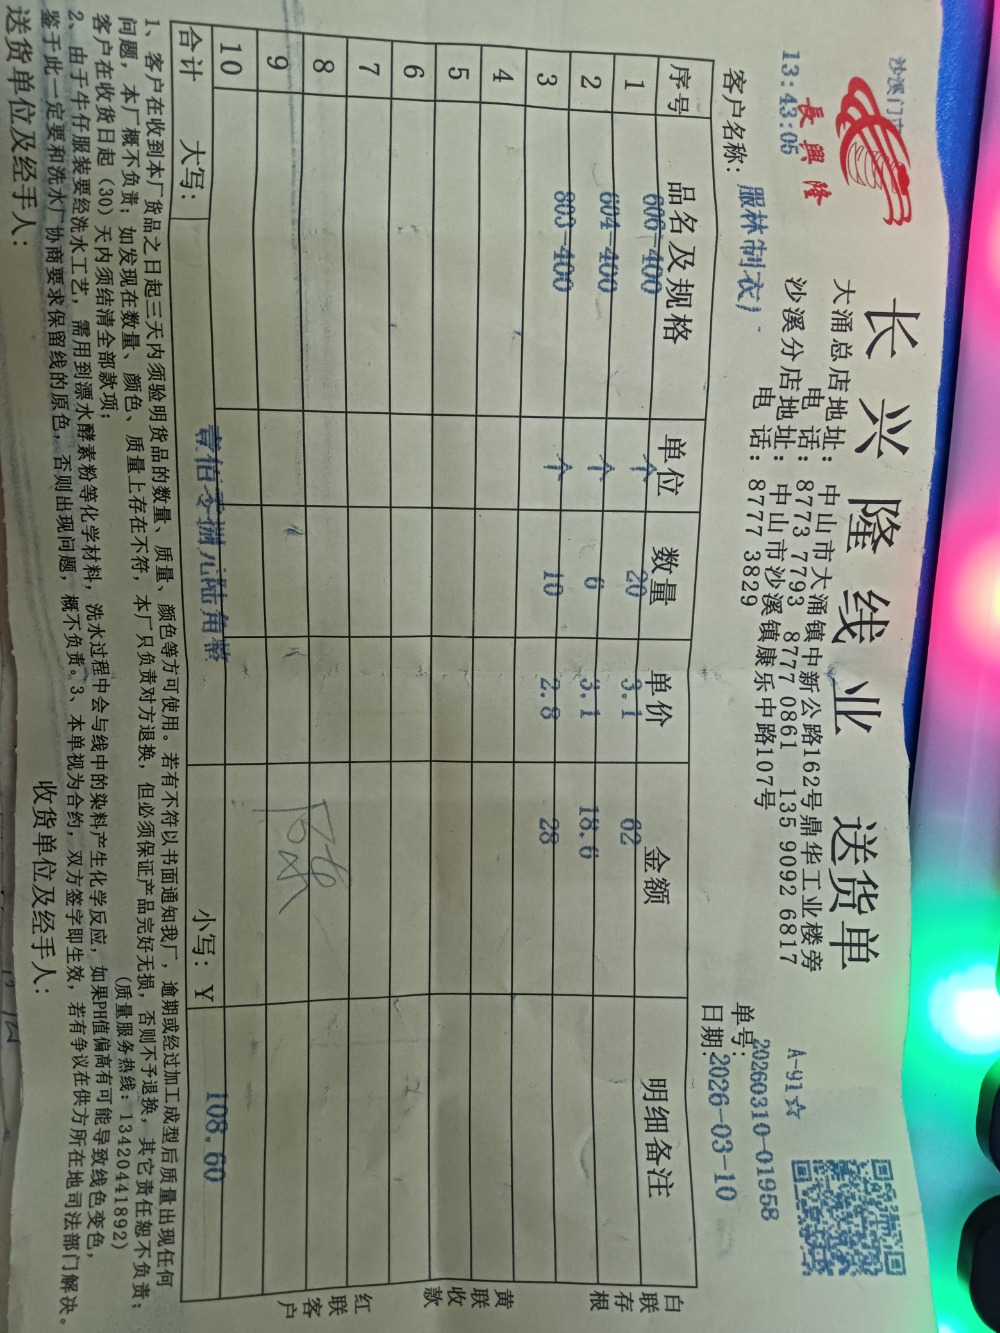 沙溪门市
13:43:05
長興隆
长兴隆线业 送货单
A-91☆
大涌总店地址：中山市大涌镇中新公路162号鼎华工业楼旁
电话：8773 7793 8777 0861 135 9092 6817
沙溪分店地址：中山市沙溪镇康乐中路107号
电话：8777 3829
单号：20260310-01958
客户名称：服林制衣厂
日期：2026-03-10
序号 品名及规格 单位 数量 单价 金额 明细备注
1 606-400 个 20 3.1 62
2 604-400 个 6 3.1 18.6
3 803-400 个 10 2.8 28
4
5
6
7
8
9
10
合计 大写：壹佰零捌元陆角整 小写：￥ 108.60
白联存根
黄联收款
红联客户
1、客户在收到本厂货品之日起三天内须验明货品的数量、质量、颜色等方可使用。若有不符以书面通知我厂，逾期或经过加工成型后质量出现任何
问题，本厂概不负责；如发现在数量、颜色、质量上存在不符，本厂只负责对方退换，但必须保证产品完好无损，否则不予退换，其它责任恕不负责；
客户在收货日起（30）天内须结清全部款项；（质量服务热线：13420441892）
2、由于牛仔服装要经洗水工艺，需用到漂水酵素粉等化学材料，洗水过程中会与线中的染料产生化学反应，如果PH值偏高有可能导致线色变色，
鉴于此一定要和洗水厂协商要求保留线的原色，否则出现问题，概不负责。3、本单视为合约，双方签字即生效，若有争议在供方所在地司法部门解决。
送货单位及经手人： 收货单位及经手人：